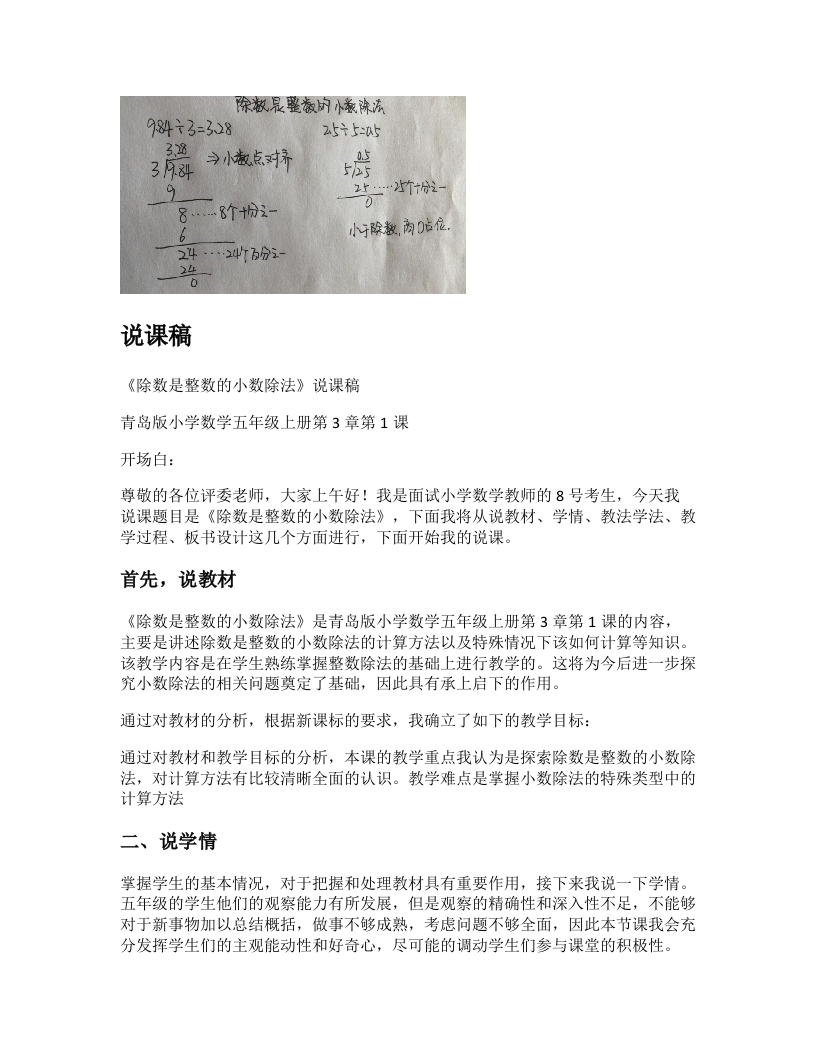 除数是整数的小数除法
9.84÷3=3.28
3.28
3 9.84 ⇒小数点对齐
9
8 ……8个十分之一
6
24 ····24个百分之一
24
0
2.5÷5=0.5
0.5
5 2.5
25 ……25个十分之一
0
小于除数,商0占位.
说课稿
《除数是整数的小数除法》说课稿
青岛版小学数学五年级上册第 3 章第 1 课
开场白：
尊敬的各位评委老师，大家上午好！我是面试小学数学教师的 8 号考生，今天我
说课题目是《除数是整数的小数除法》，下面我将从说教材、学情、教法学法、教
学过程、板书设计这几个方面进行，下面开始我的说课。
首先，说教材
《除数是整数的小数除法》是青岛版小学数学五年级上册第 3 章第 1 课的内容，
主要是讲述除数是整数的小数除法的计算方法以及特殊情况下该如何计算等知识。
该教学内容是在学生熟练掌握整数除法的基础上进行教学的。这将为今后进一步探
究小数除法的相关问题奠定了基础，因此具有承上启下的作用。
通过对教材的分析，根据新课标的要求，我确立了如下的教学目标：
通过对教材和教学目标的分析，本课的教学重点我认为是探索除数是整数的小数除
法，对计算方法有比较清晰全面的认识。教学难点是掌握小数除法的特殊类型中的
计算方法
二、说学情
掌握学生的基本情况，对于把握和处理教材具有重要作用，接下来我说一下学情。
五年级的学生他们的观察能力有所发展，但是观察的精确性和深入性不足，不能够
对于新事物加以总结概括，做事不够成熟，考虑问题不够全面，因此本节课我会充
分发挥学生们的主观能动性和好奇心，尽可能的调动学生们参与课堂的积极性。